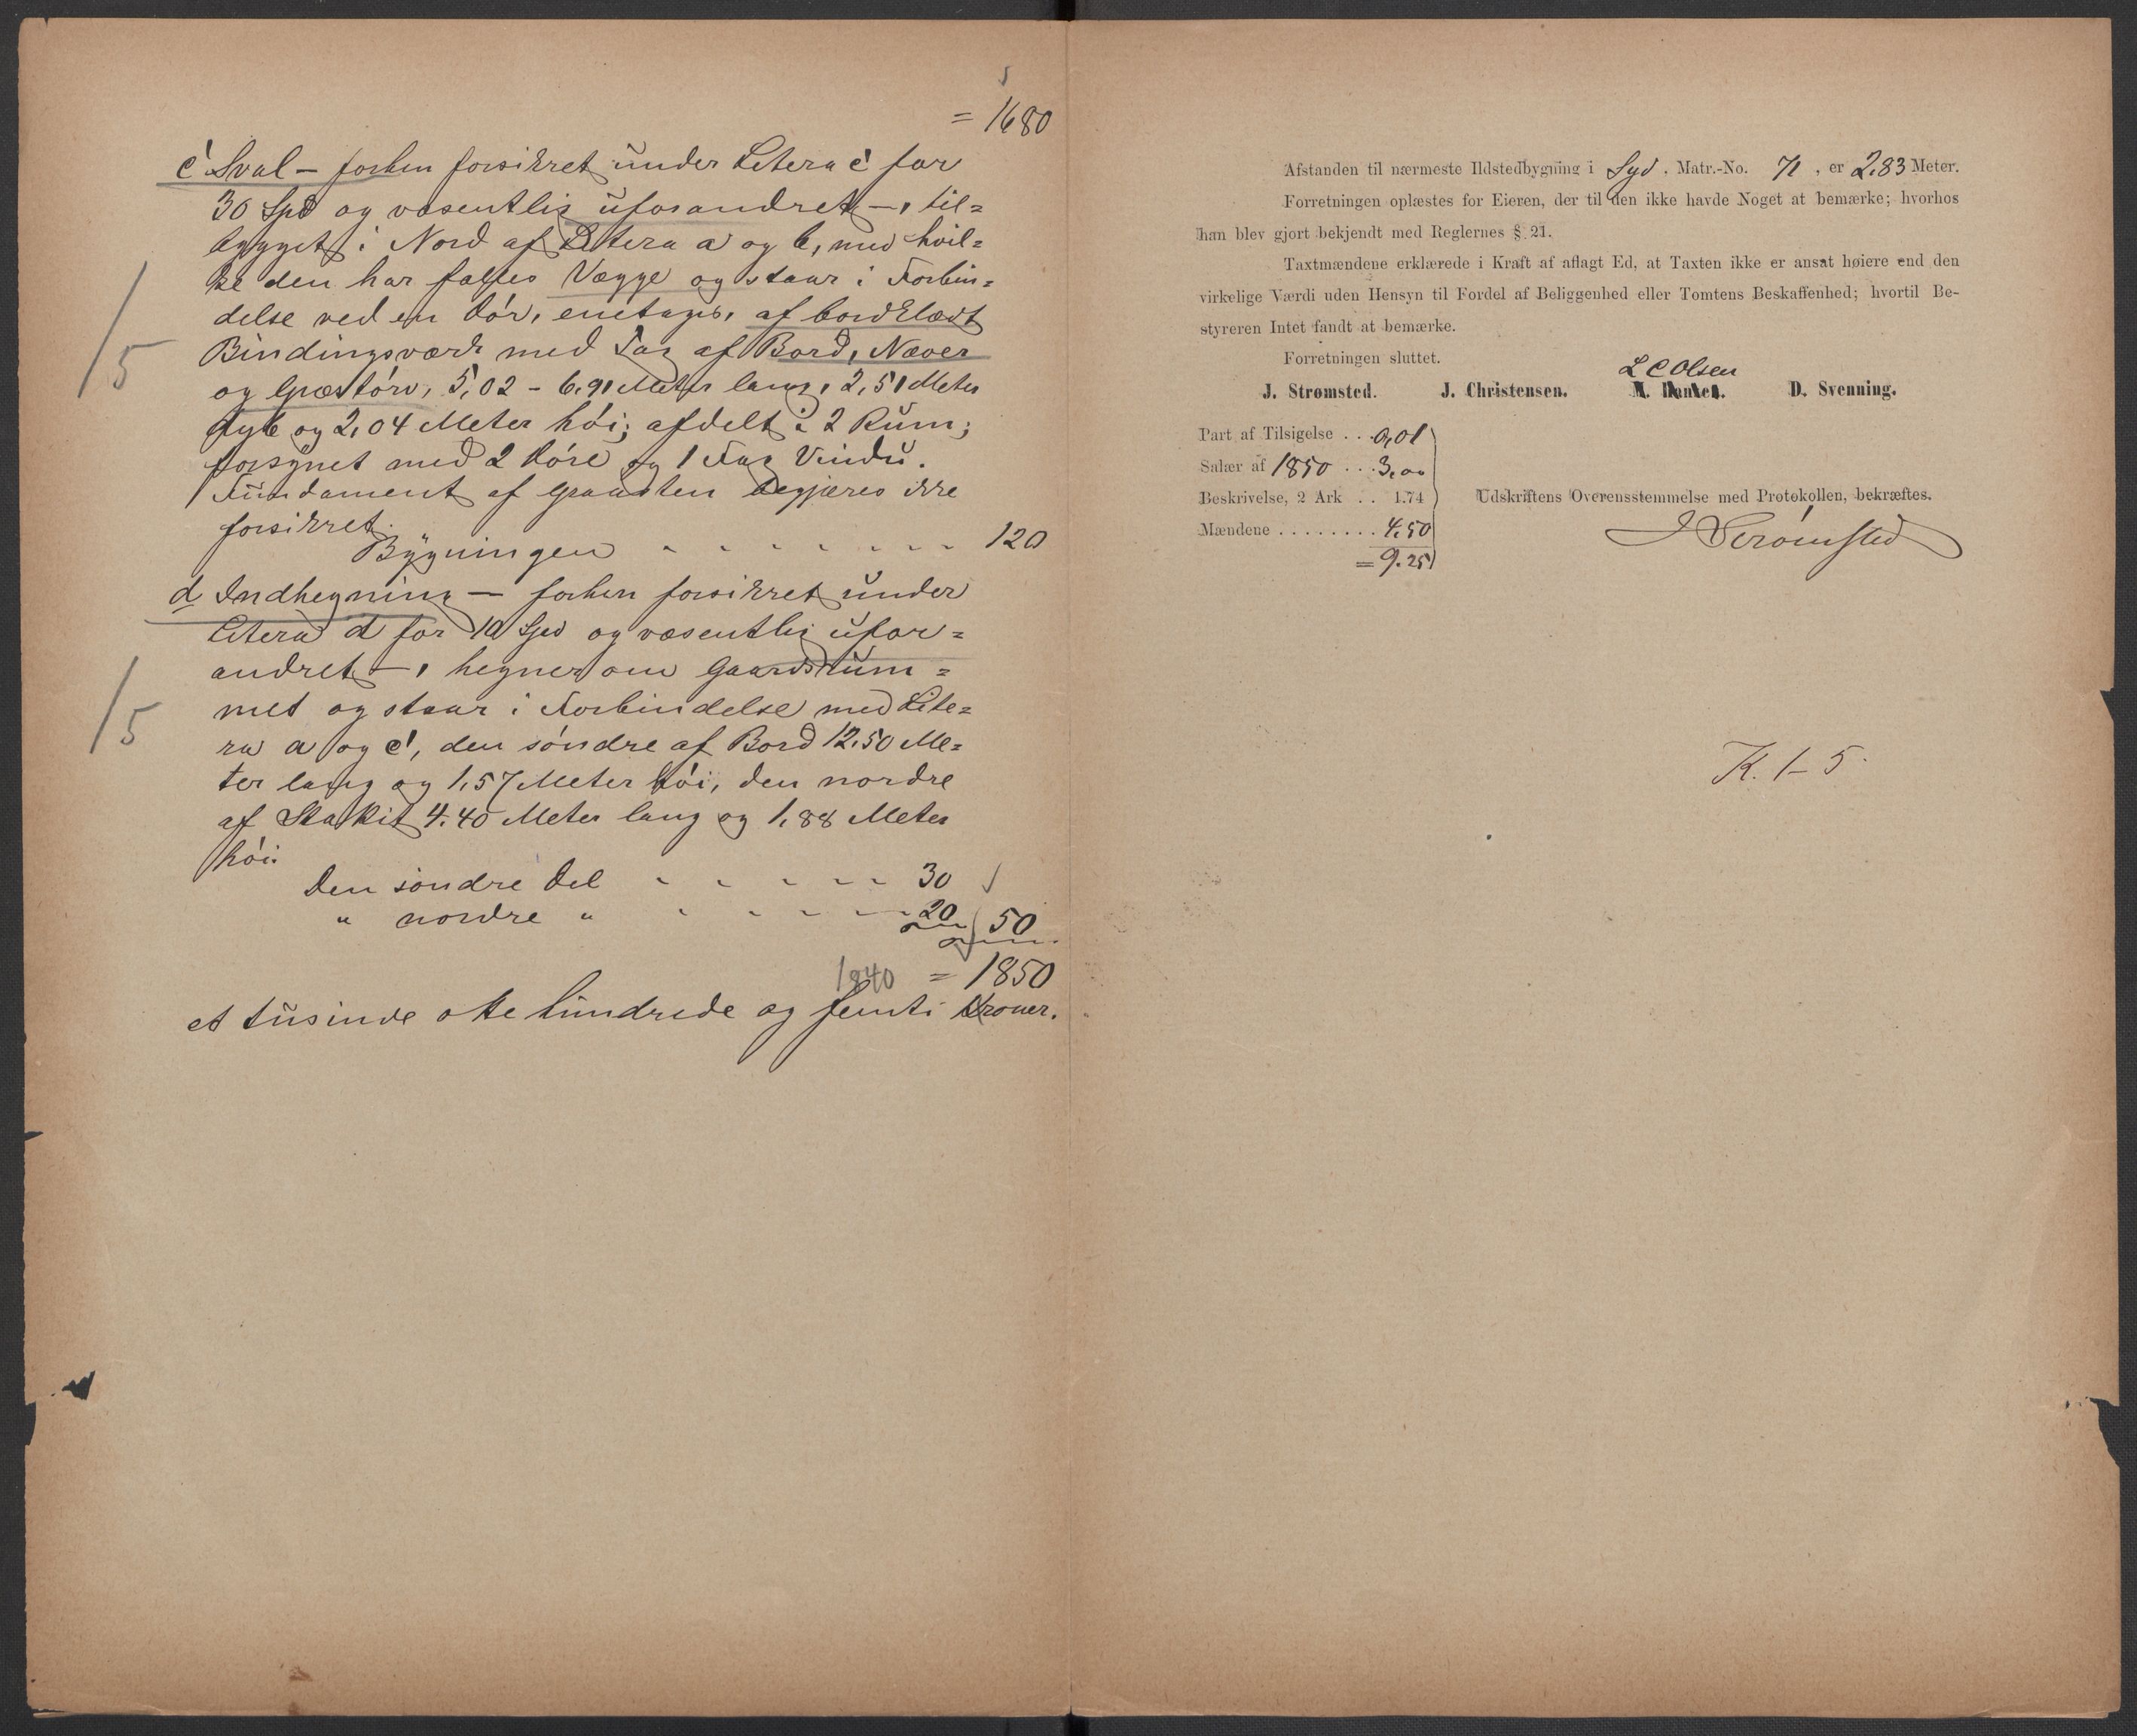 = 1680
c' Sval – forhen forsikret under Litera c' for
30 Spd og væsentlig uforandret –, til=
bygget i Nord af Litera a og b, med hvil=
ke den har fælles Vægge og staar i Forbin=
delse ved en Dør, enetages, af bordklædt
Bindingsværk med Tag af Bord, Næver
og Græstørv, 5,02 – 6,91 Meter lang, 2,51 Meter
dyb og 2,04 Meter høi; afdelt i 2 Rum;
forsynet med 2 Døre og 1 Fag Vindu.
Fundament af Graasten begjæres ikke
forsikret.
Bygningen - - - - - - - 120
d Indhegning – forhen forsikret under
Litera d for 10 Spd og væsentlig ufor=
andret –, hegner om Gaardsrum=
met og staar i Forbindelse med Lite=
ra a og c', den søndre af Bord 12.50 Me=
ter lang og 1,57 Meter høi, den nordre
af Stakit 4.40 Meter lang og 1,88 Meter
høi.
Den søndre Del - - - - - - 30
" nordre " - - - - - 20 50
1840 = 1850
et tusinde otte hundrede og femti Kroner.
/5
/5
Afstanden til nærmeste Ildstedbygning i Syd, Matr.-No. 71, er 2,83 Meter.
Forretningen oplæstes for Eieren, der til den ikke havde Noget at bemærke; hvorhos
han blev gjort bekjendt med Reglernes § 21.
Taxtmændene erklærede i Kraft af aflagt Ed, at Taxten ikke er ansat høiere end den
virkelige Værdi uden Hensyn til Fordel af Beliggenhed eller Tomtens Beskaffenhed; hvortil Be-
styreren Intet fandt at bemærke.
Forretningen sluttet.
L C Olsen
J. Strømsted. J. Christensen. D. Svenning.
Part af Tilsigelse . . . 0,01
Salær af 1850 . . . 3,00
Beskrivelse, 2 Ark . . 1.74 Udskriftens Overensstemmelse med Protokollen, bekræftes.
Mændene . . . . . . . . 4.50
J Strømsted
= 9.25
K. 1–5.